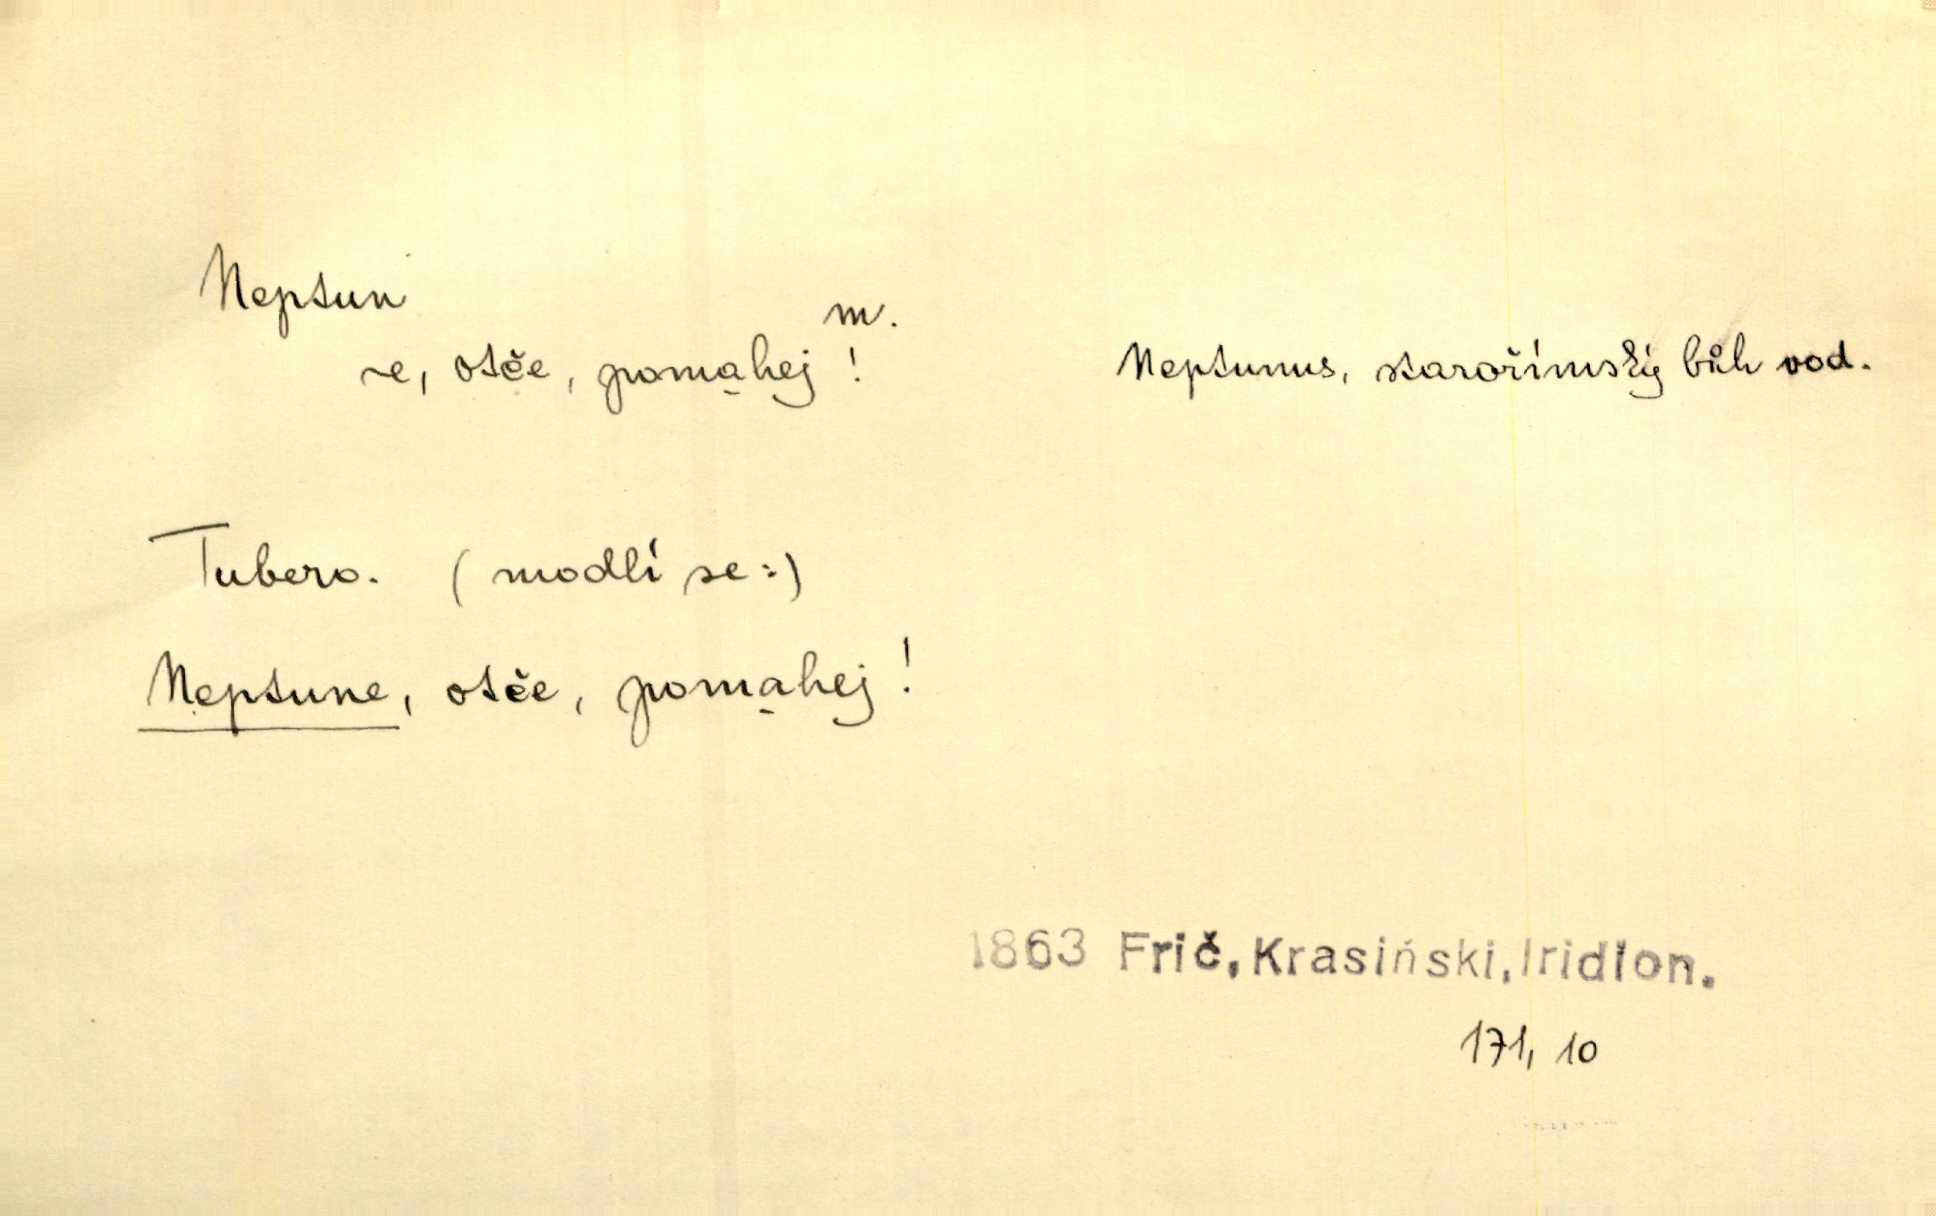 Neptun
m.
~e, otče, pomahej!
Neptunus, starořímský bůh vod.
Tubero. (modlí se:)
Neptune, otče, pomahej!
1863 Frič, Krasiński, Iridion.
171, 10